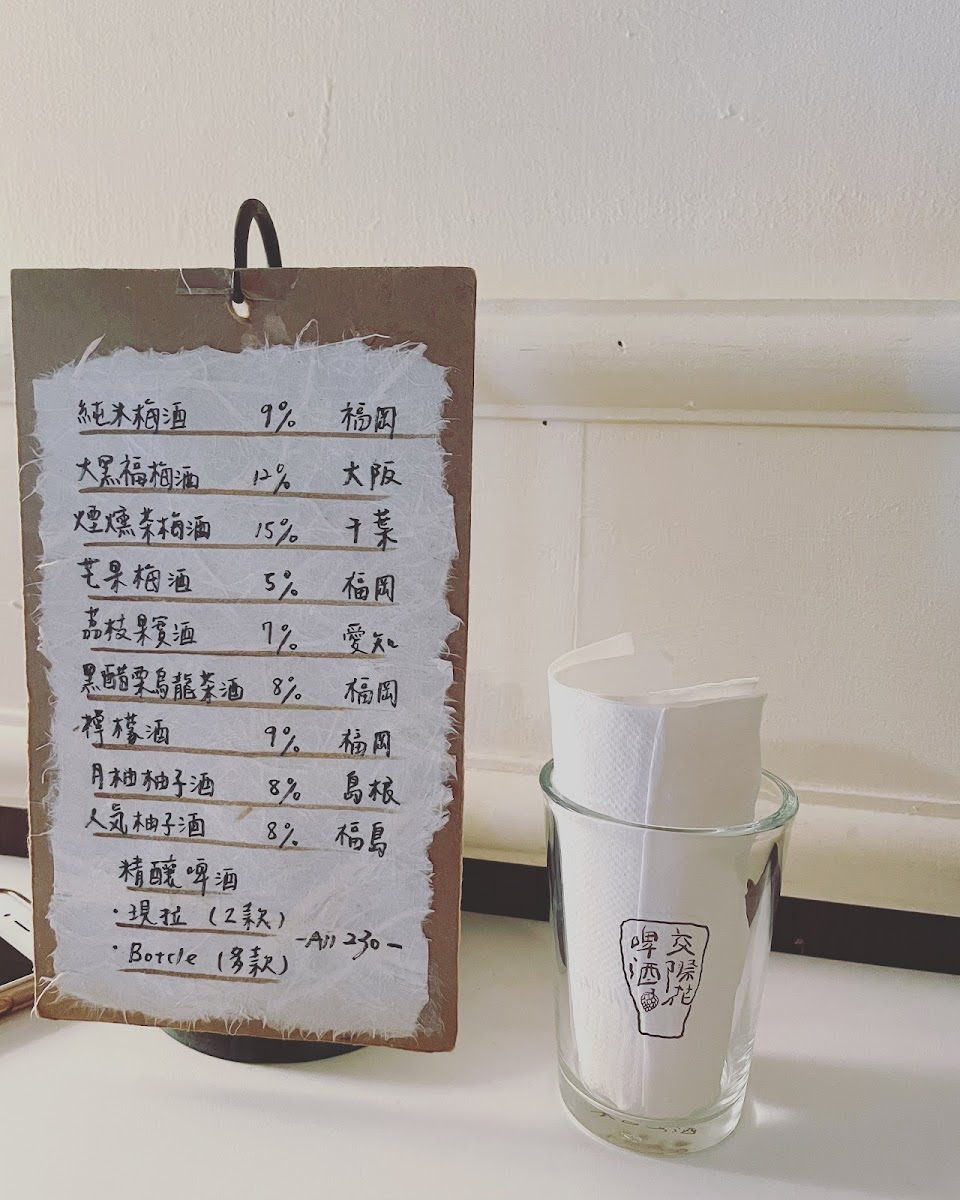 純米梅酒 9% 福岡
大黑福梅酒 12% 大阪
煙燻茶梅酒 15% 千葉
芒果梅酒 5% 福岡
荔枝果實酒 7% 愛知
黑醋栗烏龍茶酒 8% 福岡
檸檬酒 9% 福岡
月柚柚子酒 8% 島根
人気柚子酒 8% 福島
精釀啤酒
·現拉(2款)
·Bottle(多款)
-All 230-
交際花
啤酒